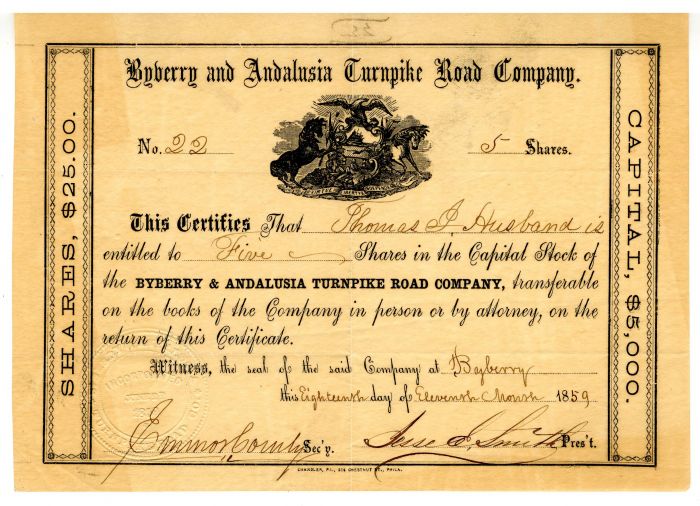 Byberry and Andalusia Turnpike Road Company.
No. 22
5 Shares.
This Certifies That Thomas J. Husband is
entitled to Five Shares in the Capital Stock of
the BYBERRY & ANDALUSIA TURNPIKE ROAD COMPANY, transferable
on the books of the Company in person or by attorney, on the
return of this Certificate.
Witness, the seal of the said Company at Byberry
this Eighteenth day of Eleventh Month 1859
Emmor Comly Sec'y.
Smith Pres't.
CHANDLER, Pr., 306 CHESTNUT ST., PHILA.
SHARES, $25.00.
CAPITAL, $5,000.